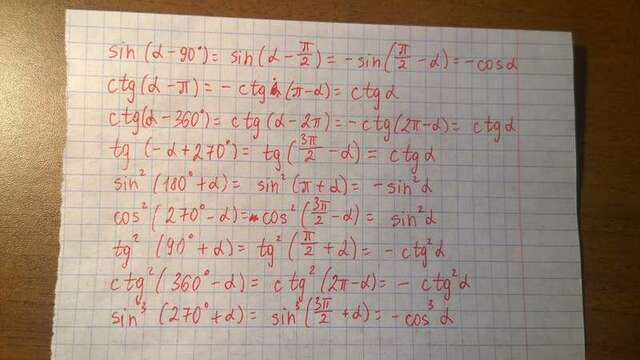 sin (α-90°) = sin (α - π/2) = - sin (π/2 - α) = - cos α
ctg (α - π) = - ctg (π-α) = ctg α
ctg (α-360°) = ctg (α - 2π) = - ctg (2π-α) = ctg α
tg (-α+270°) = tg (3π/2 - α) = ctg α
sin² (180°+α) = sin² (π+α) = - sin² α
cos² (270°-α) = cos² (3π/2 - α) = sin² α
tg² (90°+α) = tg² (π/2 + α) = - ctg² α
ctg² (360°-α) = ctg² (2π-α) = - ctg² α
sin³ (270°+α) = sin³ (3π/2 + α) = - cos³ α